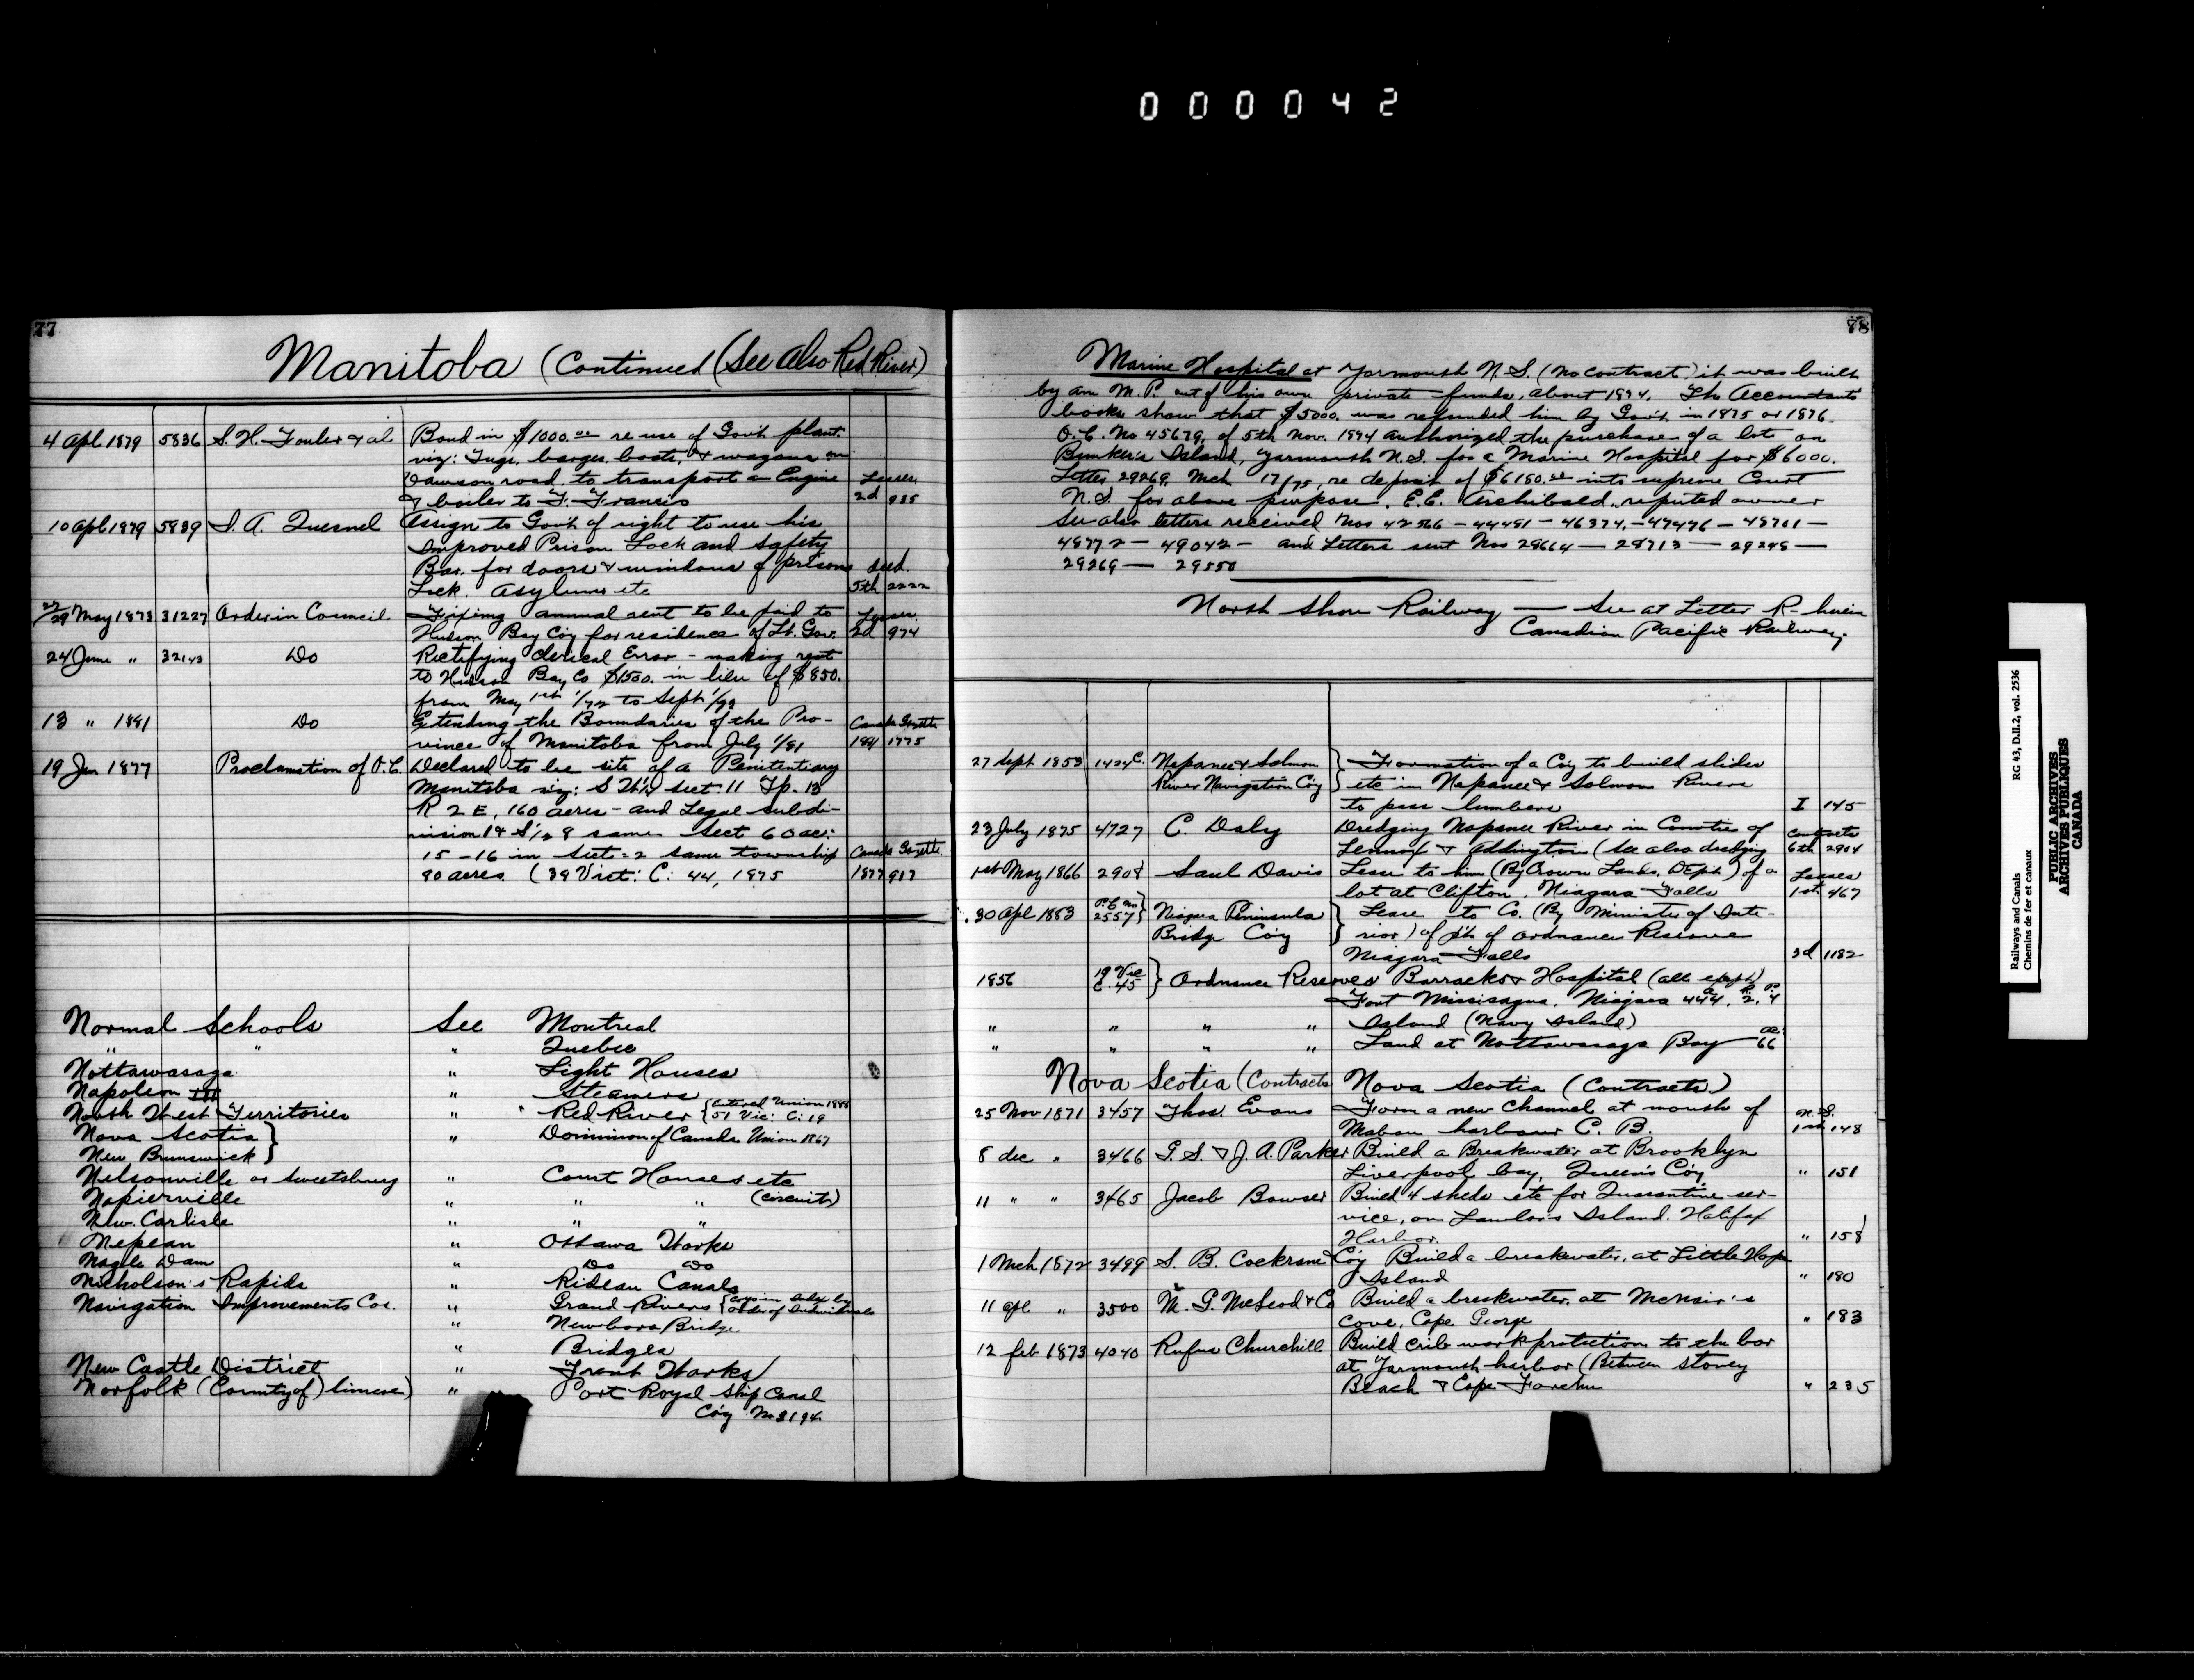 000042
77
Manitoba (Continued (See also Red River)
4 Apl 1879 5836 S. H. Fowler & al Bond in $1000.00 re use of Gov't plant.
viz: Tugs, barges, boats, & wagons on
Dawson road, to transport an Engine Leases
& boiler to F. Francis 2d 985
10 apl 1879 5839 J. A. Quesnel Assign to Gov't of right to use his
Improved Prison Lock and Safety
Bar, for doors & windows of prisons deed.
Lock. Asylums etc 5th 2222
27/29 May 1873 31227 Order in Council Fixing annual rent to be paid to Leases
Hudson Bay Co'y for residence of Lt. Gov. 2d 974
24 June " 32143 Do Rectifying clerical Error - making rent
to Hudson Bay Co $1500. in lieu of $850.
from May 1st to Sept
13 " 1881 Do Extending the Boundaries of the Pro- Canada Gazette
vince of Manitoba from July 1/81 1881 1775
19 Jan 1877 Proclamation of O.C. Declared to be site of a Penitentiary
Manitoba viz: Sect. 11 Tp. 13
R 2 E, 160 acres - and Legal subdi-
vision same Sect 60 ac:
15-16 in Sect: 2 same township Canada Gazette
90 acres. (39 Vict: C: 44, 1875 1877 917
Normal Schools See Montreal
" " " Quebec
Nottawasaga " Light Houses
Napoleon III " Steamers
North West Territories " Red River {Entered Union 1888
51 Vic: C: 19
Nova Scotia } " Dominion of Canada Union 1867
New Brunswick }
Nelsonville or Sweetsburg " Court Houses etc
Napierville " " " (circuits)
New Carlisle " " "
Nepean " Ottawa Works
Nagle Dam " Do Do
Nicholson's Rapids " Rideau Canals
Navigation Improvements Cos. " Grand Rivers
" Newboro Bridge
" Bridges
New Castle District " Trent Works
Norfolk (County of) Simcoe) " Port Royal Ship Canal
Co'y No 2194
78
Marine Hospital at Yarmouth N.S. (no contract) it was built
by an M.P. out of his own private funds, about 1874. The Accountants
books show that $5000. was refunded him by Gov't in 1875 or 1876
O.C. No 45679, of 5th Nov. 1874 authorized the purchase of a lot on
Bunker's Island, Yarmouth N.S. for a Marine Hospital for $6000.
Letter 29269, Mch 17/75, re deposit of $6180.00 into supreme Court
N.S. for above purpose. E.C. Archibald, reputed owner
See also letters received Nos 42566 - 44481 - 46374 - 47476 - 48701 -
48772 - 49042 - and Letters sent Nos 28664 - 28713 - 29248 -
29269 - 29550
North Shore Railway — See at Letter R- herein
Canadian Pacific Railway.
27 Sept 1853 1424C. Napanee & Salmon } Formation of a Co'y to build slides
River Navigation Co'y } etc in Napanee & Salmon Rivers
to pass lumbers I 145
23 July 1875 4727 C. Daly Dredging Napanee River in Counties of Contracts
Lennox & Addington (See also dredging 6th 2904
1st May 1866 2908 Saul Davis Lease to him (By Crown Lands Dep't) of a Leases
lot at Clifton, Niagara Falls 1st 467
30 Apl 1883 2557 Niagara Peninsula } Lease to Co. (By Minister of Inte-
Bridge Co'y } rior) of pt. of Ordnance Reserve
Niagara Falls 3d 1182
1856 19 Vic C. 45 } Ordnance Reserves Barracks & Hospital (all
Fort Missisagua, Niagara 444. 2. 4
" " " " Island (Navy Island)
" " " " Land at Nottawasaga Bay ac: 66
Nova Scotia (Contracts Nova Scotia (Contracts)
25 Nov 1871 3457 Thos. Evans Form a new Channel at mouth of N.S.
Mabou harbour C. B. 1st 148
8 dec " 3466 G. S. & J. A. Parker Build a Breakwater at Brooklyn
Liverpool bay, Queen's Co'y " 151
11 " " 3465 Jacob Bowser Build 4 sheds etc for Quarantine ser-
vice, on Lawlor's Island. Halifax
Harbor. " 158
1 Mch 1872 3499 S. B. Cockrane & Co'y Build a breakwater, at Little Hope
Island " 180
11 apl " 3500 M. G. McLeod & Co Build a breakwater, at McNair's
cove, Cape George " 183
12 feb 1873 4040 Rufus Churchill Build crib work protection to the bar
at Yarmouth harbor (Between Stoney
Beach & Cape Forchu " 235
Railways and Canals RG 43, D.II.2, vol. 2536
Chemins de fer et canaux
PUBLIC ARCHIVES
ARCHIVES PUBLIQUES
CANADA